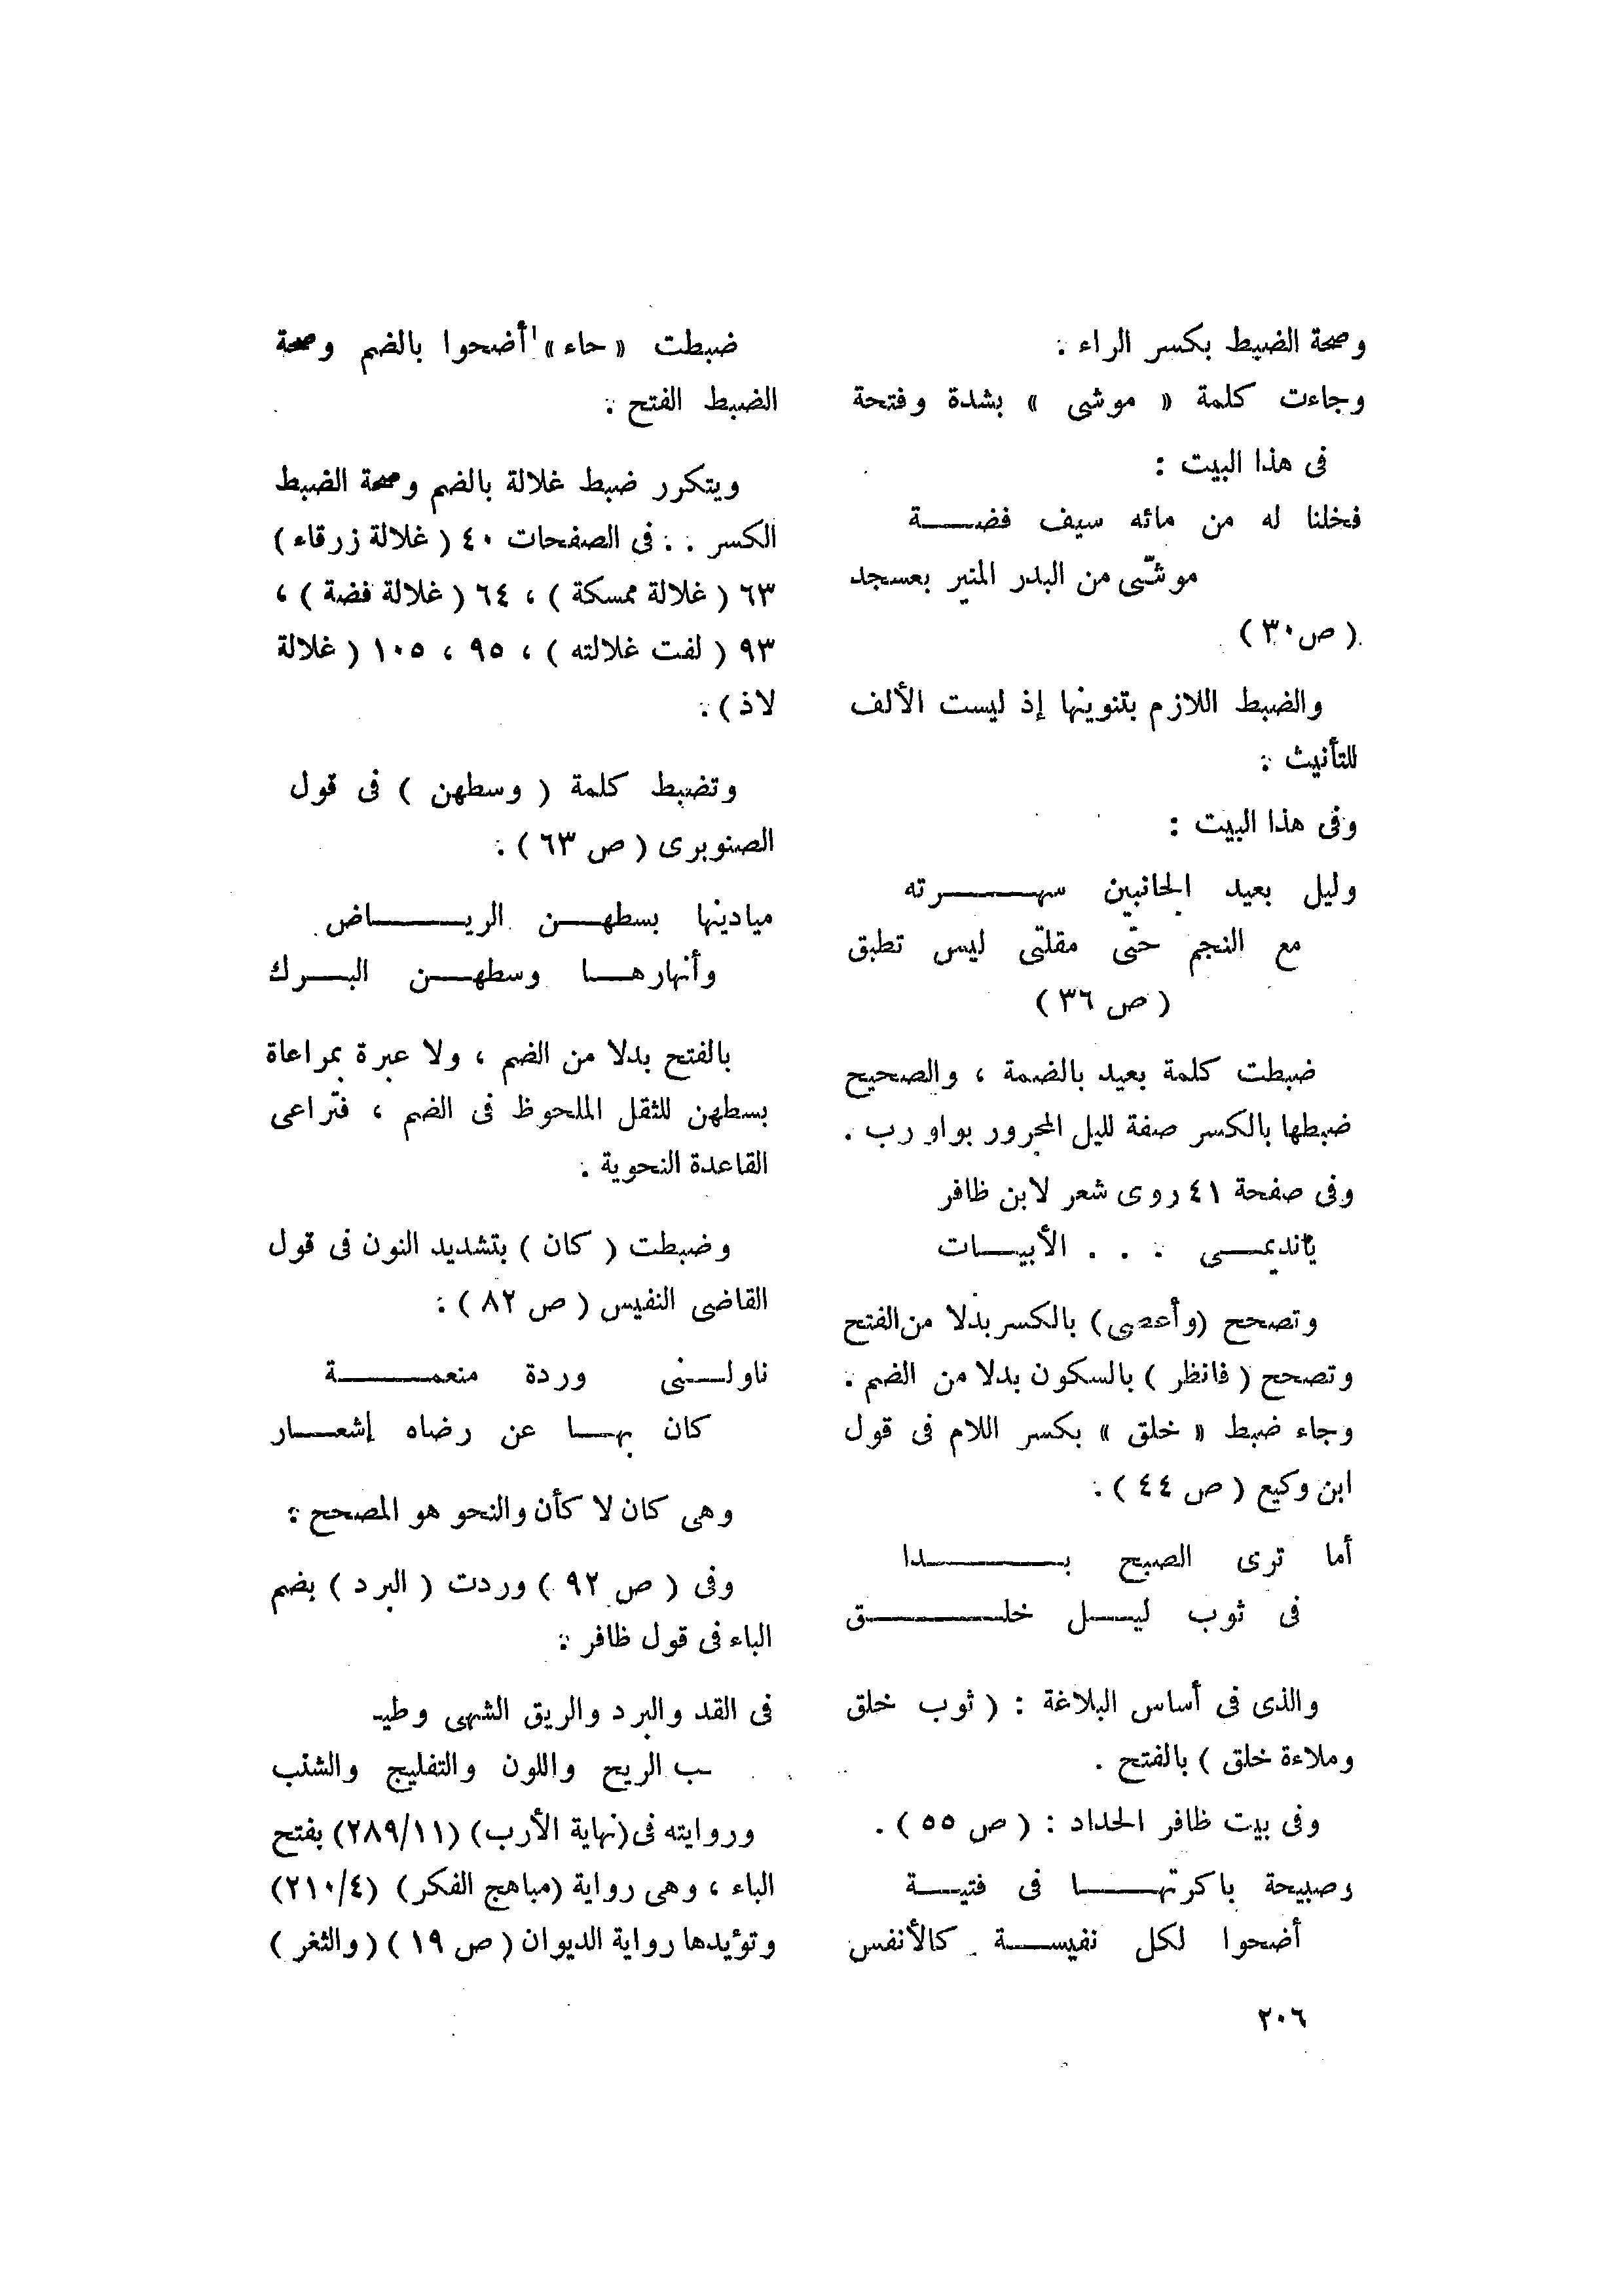 وصحة الضبط بكسر الراء .
وجاءت كلمة « موشى » بشدة وفتحة
فى هذا البيت :
فخلنا له من مائه سيف فضــــة
موشّى من البدر المنير بعسجد
( ص ٣٠ )
والضبط اللازم بتنوينها إذ ليست الألف
للتأنيث .
وفى هذا البيت :
وليل بعيد الجانبين سهــــرته
مع النجم حتّى مقلتى ليس تطبق
( ص ٣٦ )
ضبطت كلمة بعيد بالضمة ، والصحيح
ضبطها بالكسر صفة لليل المجرور بواو رب .
وفى صفحة ٤١ روى شعر لابن ظافر
يانديمــى . . . الأبيــات
وتصحح (وأعصى) بالكسر بدلا من الفتح
وتصحح ( فانظر ) بالسكون بدلا من الضم .
وجاء ضبط « خلق » بكسر اللام فى قول
ابن وكيع ( ص ٤٤ ) .
أما ترى الصبح بــــدا
فى ثوب ليــل خلــــق
والذى فى أساس البلاغة : ( ثوب خلق
وملاءة خلق ) بالفتح .
وفى بيت ظافر الحداد : ( ص ٥٥ ) .
وصبيحة باكرتهــــا فى فتيــة
أضحوا لكل نفيســة كالأنفس
٢٠٦
ضبطت « حاء » أضحوا بالضم وصحة
الضبط الفتح .
ويتكرر ضبط غلالة بالضم وصحة الضبط
الكسر . . فى الصفحات ٤٠ ( غلالة زرقاء )
٦٣ ( غلالة ممسكة ) ، ٦٤ ( غلالة فضة ) ،
٩٣ ( لفت غلالته ) ، ٩٥ ، ١٠٥ ( غلالة
لاذ ) .
وتضبط كلمة ( وسطهن ) فى قول
الصنوبرى ( ص ٦٣ ) .
ميادينها بسطهــن الريــــاض
وأنهارهــا وسطهــن البــرك
بالفتح بدلا من الضم ، ولا عبرة بمراعاة
بسطهن للثقل الملحوظ فى الضم ، فتّراعى
القاعدة النحوية .
وضبطت ( كان ) بتشديد النون فى قول
القاضى النفيس ( ص ٨٢ ) .
ناولــنى وردة منعمــــة
كان بهــا عن رضاه إشعــار
وهى كان لا كأن والنحو هو المصحح .
وفى ( ص ٩٢ ) وردت ( البرد ) بضم
الباء فى قول ظافر .
فى القد والبرد والريق الشهى وطيـ
ـب الريح واللون والتفليج والشنب
وروايته فى (نهاية الأرب) (٢٨٩/١١) بفتح
الباء ، وهى رواية (مباهج الفكر) (٢١٠/٤)
وتؤيدها رواية الديوان ( ص ١٩ ) ( والثغر )